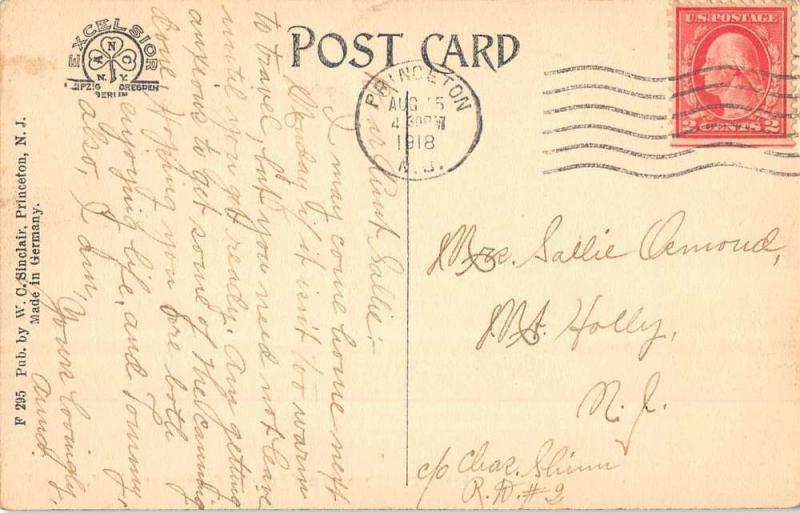 EXCELSIOR
A N G C
N. Y.
LEIPZIG DRESDEN
BERLIN
POST CARD
U.S. POSTAGE
2 CENTS 2
PRINCETON
AUG 15
4 30PM
1918
N. J.
Dear Aunt Sallie:-
I may come home next
Monday if it isn't too warm
to travel, but you need not leave
until you get ready. Am getting
anxious to get some of the canning
done. Hoping you are both
enjoying life, and Tommy,
also, I am,
Yours lovingly,
Mrs. Sallie Ormond,
Mt. Holly,
N. J.
c/o Chas. Shinn
R. D. #2
F 295 Pub. by W. C. Sinclair, Princeton, N. J.
Made in Germany.